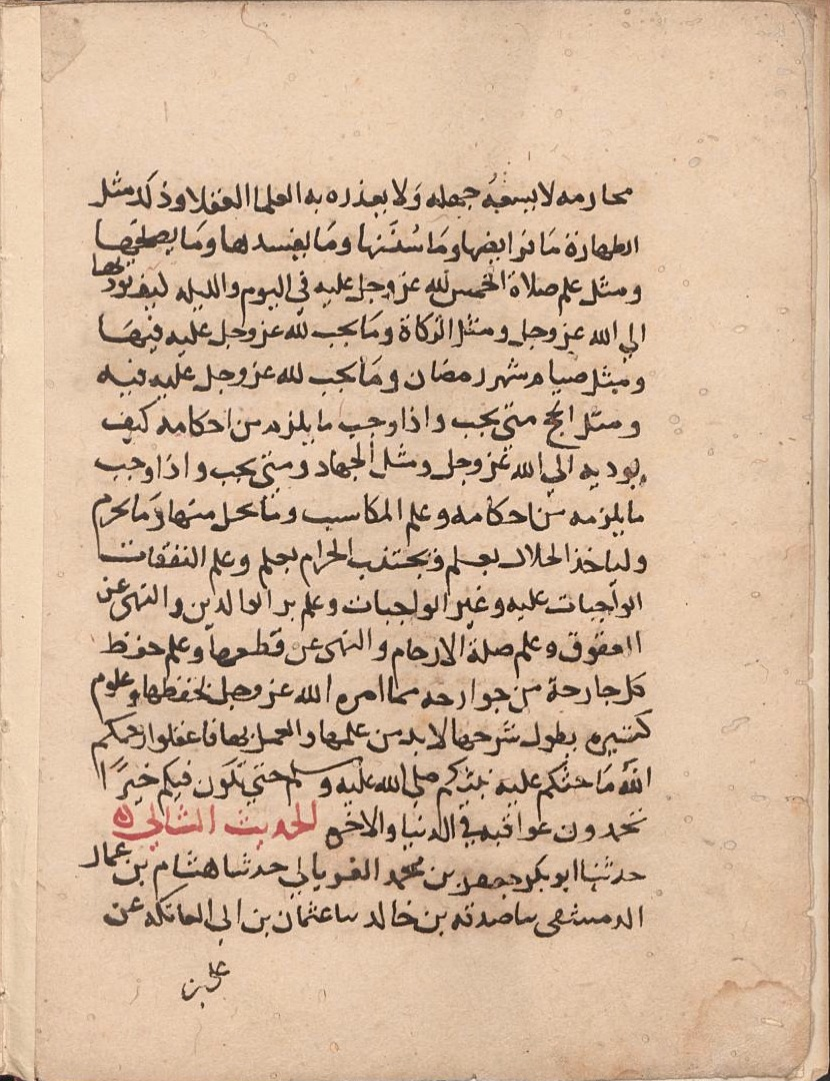 محارمه لا يسعه جهله ولا يعذره به العلما العقلا وذلك مثل
الطهارة ما فرايضها وما سُنَنها وما يفسدها وما يصلحها
ومثل علم صلاة الخمس لله عز وجل عليه في اليوم والليله ليف يودي بها
الي الله عز وجل ومثل الزكاة وما يجب لله عز وجل عليه فيها
ومثل صيام شهر رمضان وما يجب لله عز وجل عليه فيه
ومثل الحج متي يجب واذا وجب ما يلزمه من احكامه كيف
يوديه الي الله عز وجل ومثل الجهاد ومتي يجب واذا وجب
ما يلزمه من احكامه وعلم المكاسب وما يحل منها وما يحرم
ولياخذ الحلال بعلم ويجتنب الحرام بعلم وعلم النفقات
الواجبات عليه وغير الواجبات وعلم بر الوالدين والنهي عن
العقوق وعلم صلة الارحام والنهي عن قطعها وعلم حفظ
كل جارحة من جوارحه مما امره الله عز وجل بحفظها وعلوم
كثيره يطول شرحها لابد من علمها والعمل بها فاعقلوا رحمكم
الله ما حثكم عليه نبيكم صلي الله عليه وسلم حتي تكون فيكم خيرًا
تحمدون عواقبه في الدنيا والاخره الحديث الثاني ه
حدثنا ابو بكر جعفر بن محمد الفريابي حدثنا هشام بن عمار
الدمشقي نا صدقه بن خالد نا عثمان بن ابي العاتكه عن
علي بن